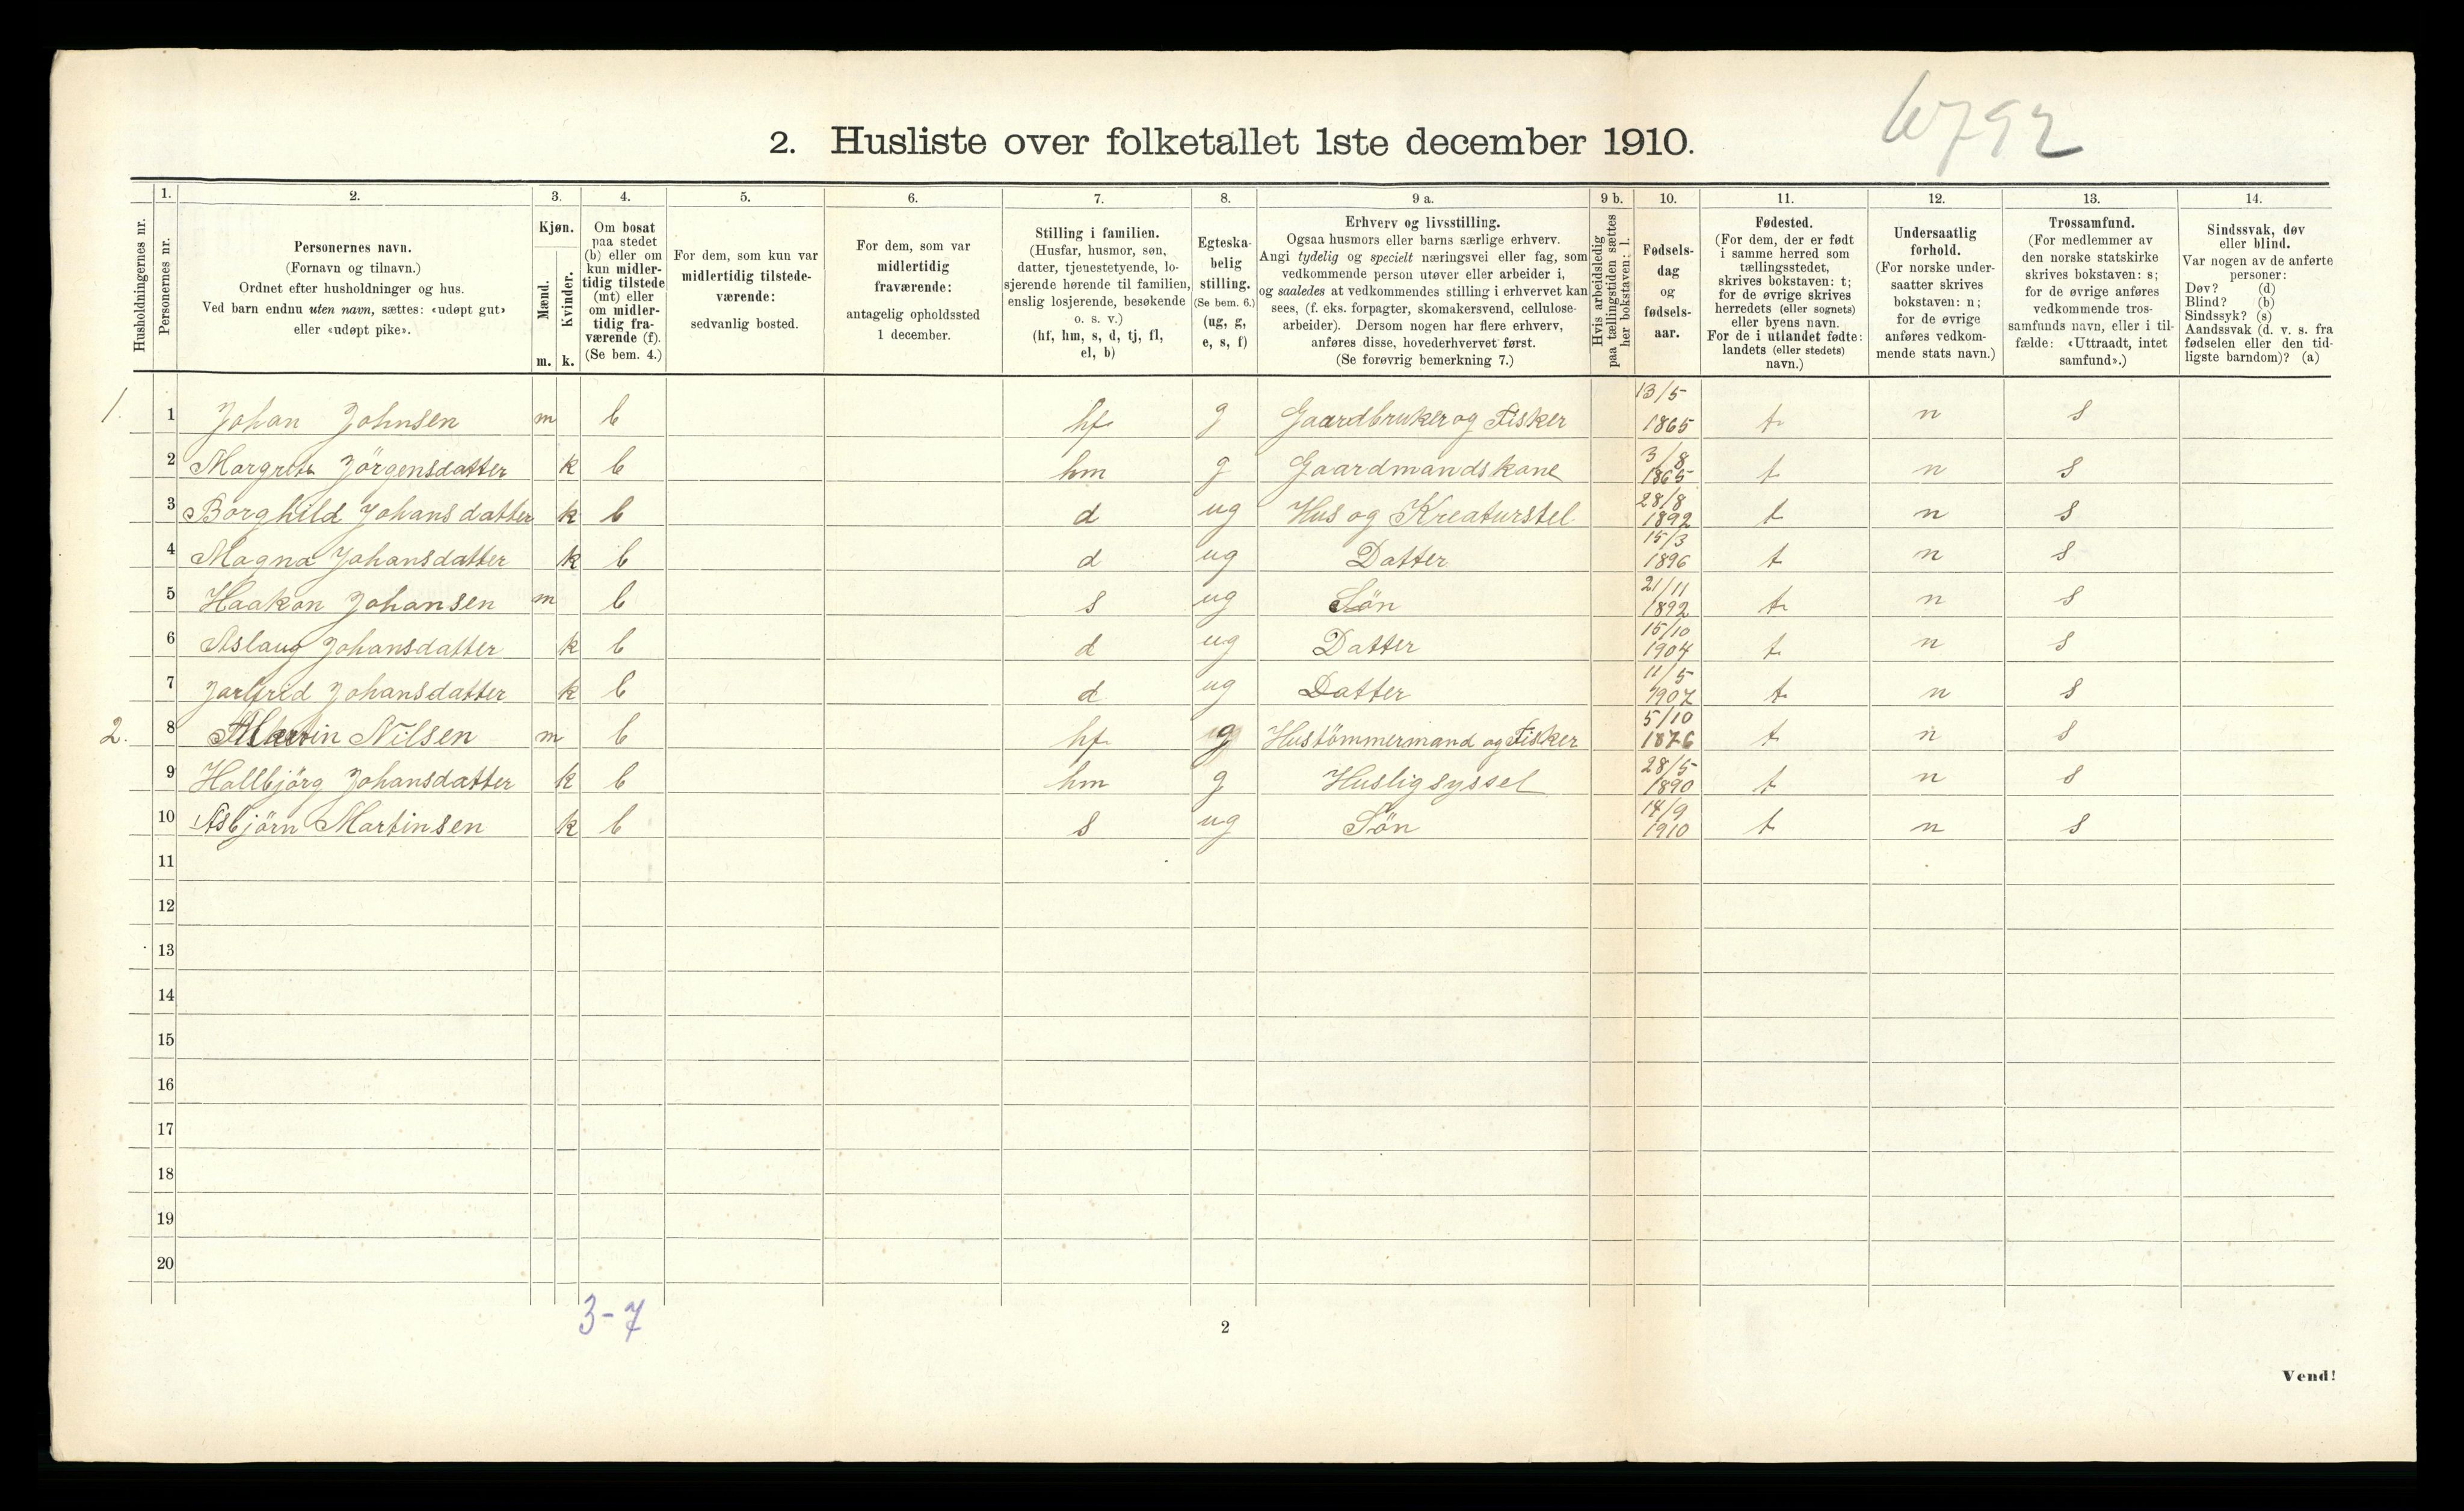 6792
2. Husliste over folketallet 1ste december 1910.
Husholdningernes nr.
1.
Personernes nr.
2.
Personernes navn.
(Fornavn og tilnavn.)
Ordnet efter husholdninger og hus.
Ved barn endnu uten navn, sættes: «udøpt gut»
eller «udøpt pike».
3.
Kjøn.
Mænd.
Kvinder.
m. k.
4.
Om bosat
paa stedet
(b) eller om
kun midler-
tidig tilstede
(mt) eller
om midler-
tidig fra-
værende (f).
(Se bem. 4.)
5.
For dem, som kun var
midlertidig tilstede-
værende:
sedvanlig bosted.
6.
For dem, som var
midlertidig
fraværende:
antagelig opholdssted
1 december.
7.
Stilling i familien.
(Husfar, husmor, søn,
datter, tjenestetyende, lo-
sjerende hørende til familien,
enslig losjerende, besøkende
o. s. v.)
(hf, hm, s, d, tj, fl,
el, b)
8.
Egteska-
belig
stilling.
(Se bem. 6.)
(ug, g,
e, s, f)
9 a.
Erhverv og livsstilling.
Ogsaa husmors eller barns særlige erhverv.
Angi tydelig og specielt næringsvei eller fag, som
vedkommende person utøver eller arbeider i,
og saaledes at vedkommendes stilling i erhvervet kan
sees, (f. eks. forpagter, skomakersvend, cellulose-
arbeider). Dersom nogen har flere erhverv,
anføres disse, hovederhvervet først.
(Se forøvrig bemerkning 7.)
9 b.
Hvis arbeidsledig
paa tællingstiden sættes
her bokstaven: l.
10.
Fødsels-
dag
og
fødsels-
aar.
11.
Fødested.
(For dem, der er født
i samme herred som
tællingsstedet,
skrives bokstaven: t;
for de øvrige skrives
herredets (eller sognets)
eller byens navn.
For de i utlandet fødte:
landets (eller stedets)
navn.)
12.
Undersaatlig
forhold.
(For norske under-
saatter skrives
bokstaven: n;
for de øvrige
anføres vedkom-
mende stats navn.)
13.
Trossamfund.
(For medlemmer av
den norske statskirke
skrives bokstaven: s;
for de øvrige anføres
vedkommende tros-
samfunds navn, eller i til-
fælde: «Uttraadt, intet
samfund».)
14.
Sindssvak, døv
eller blind.
Var nogen av de anførte
personer:
Døv? (d)
Blind? (b)
Sindssyk? (s)
Aandssvak (d. v. s. fra
fødselen eller den tid-
ligste barndom)? (a)
1. 1 Johan Johnsen m b hf g Gaardbruker og Fisker 13/5 1865 t n s
2 Margrete Jörgensdatter k b hm g Gaardmandskone 3/8 1865 t n s
3 Borghild Johansdatter k b d ug Hus og Kreaturstel 28/8 1892 t n s
4 Magna Johansdatter k b d ug Datter 15/3 1896 t n s
5 Haakon Johansen m b s ug Sön 21/11 1892 t n s
6 Aslaug Johansdatter k b d ug Datter 15/10 1904 t n s
7 Jarfrid Johansdatter k b d ug Datter 11/5 1907 t n s
2. 8 Martin Nilsen m b hf g Hustömmermand og Fisker 5/10 1876 t n s
9 Hallbjörg Johansdatter k b hm g Huslig syssel 28/5 1890 t n s
10 Asbjörn Martinsen k b s ug Sön 14/9 1910 t n s
11
12
13
14
15
16
17
18
19
20
3-7
2
Vend!